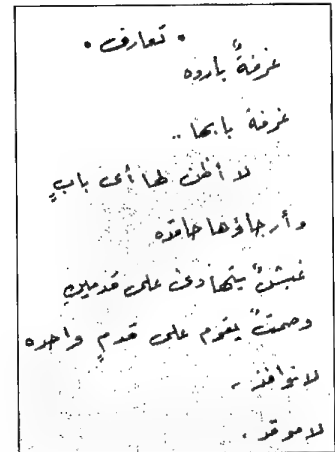 • تعارف •
غرفةٌ بارده
غرفة بابها ..
لا أظن لها أى بابٍ
وأرجاؤها حاقده
غبشٌ يتهادى على قدمينِ
وصمتٌ يقوم على قدمٍ واحده
لا نوافذ .
لا موقد .